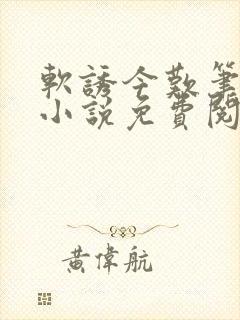 軟誘今歎筆
小說免費閱
黃偉航